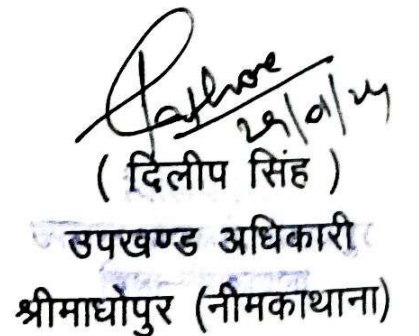 ( दिलीप सिंह )
उपखण्ड अधिकारी
श्रीमाधोपुर (नीमकाथाना)